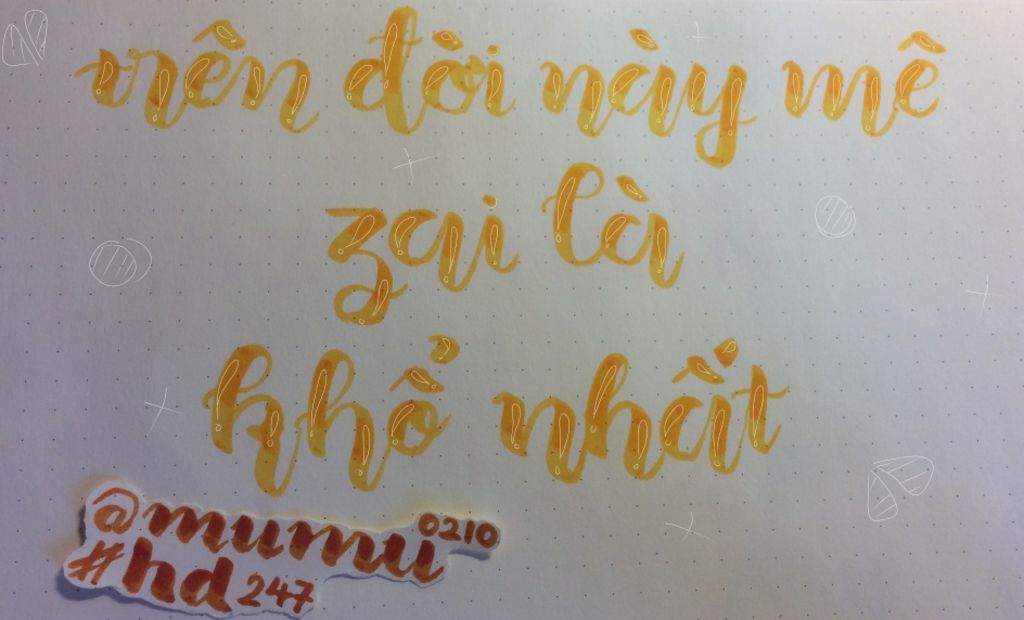 trên đời này mê
zai là
khổ nhất
@mumu0210
#hd247